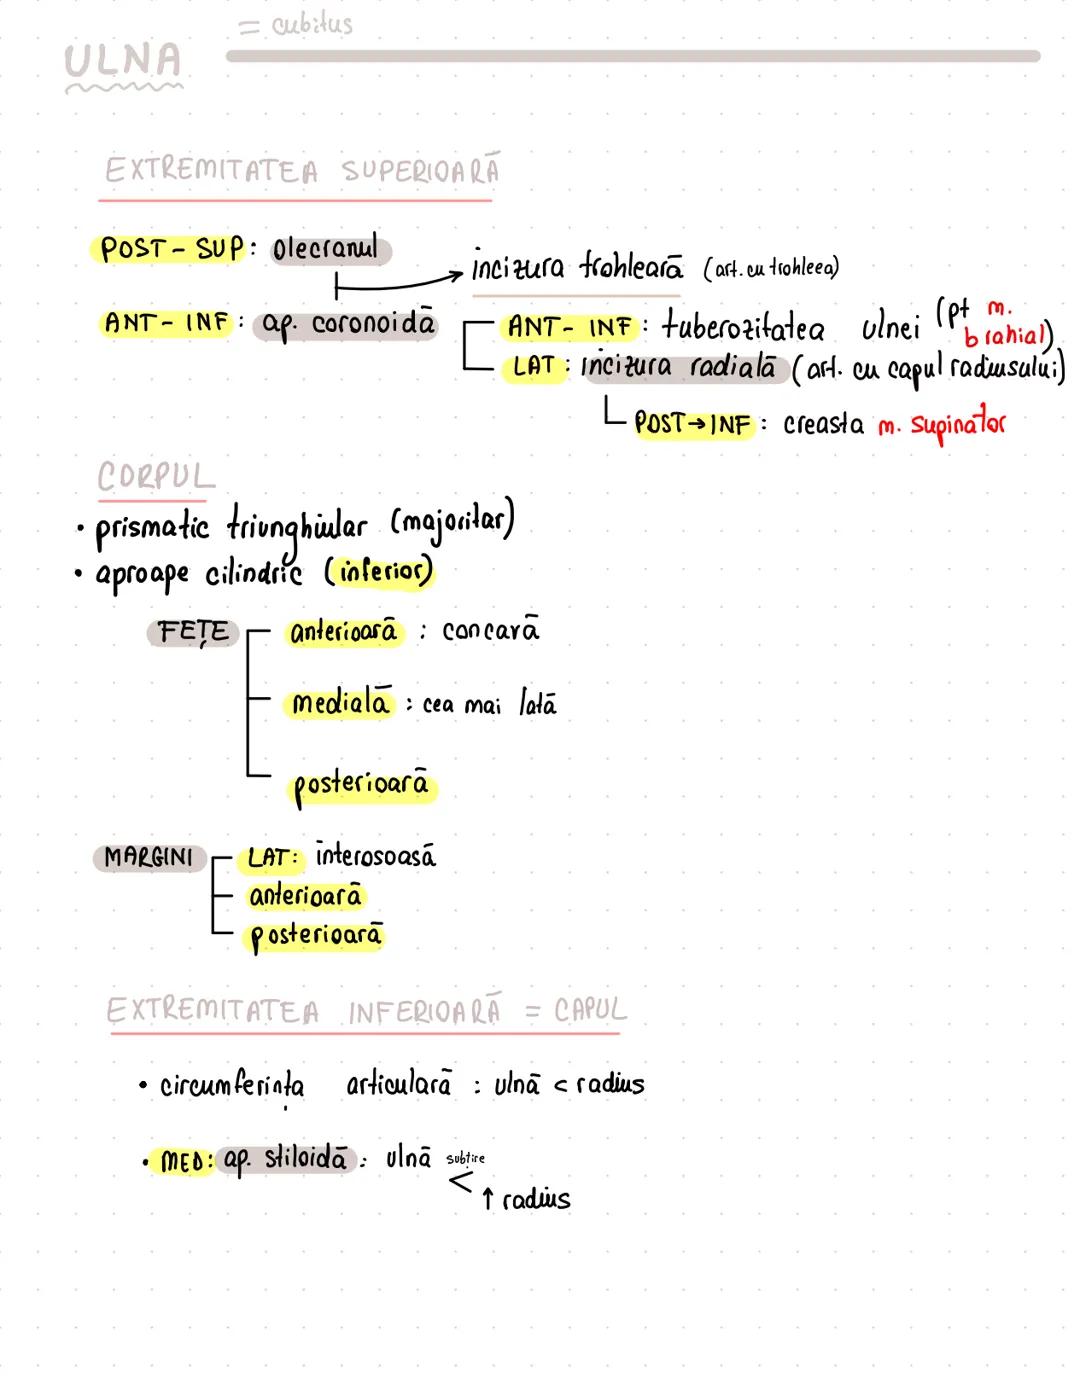 = cubitus
ULNA
EXTREMITATEA SUPERIOARĂ
POST - SUP: olecranul
incizura trohleară (art. cu trohleea)
ANT - INF: ap. coronoidă
ANT - INF: tuberozitatea ulnei (pt m. brahial)
LAT: incizura radială (art. cu capul radiusului)
POST→INF: creasta m. supinator
CORPUL
• prismatic triunghiular (majoritar)
• aproape cilindric (inferior)
FEȚE
anterioară : concavă
medială : cea mai lată
posterioară
MARGINI
LAT: interosoasă
anterioară
posterioară
EXTREMITATEA INFERIOARĂ = CAPUL
• circumferința articulară : ulnă < radius
• MED: ap. stiloidă : ulnă subtire
< ↑ radius